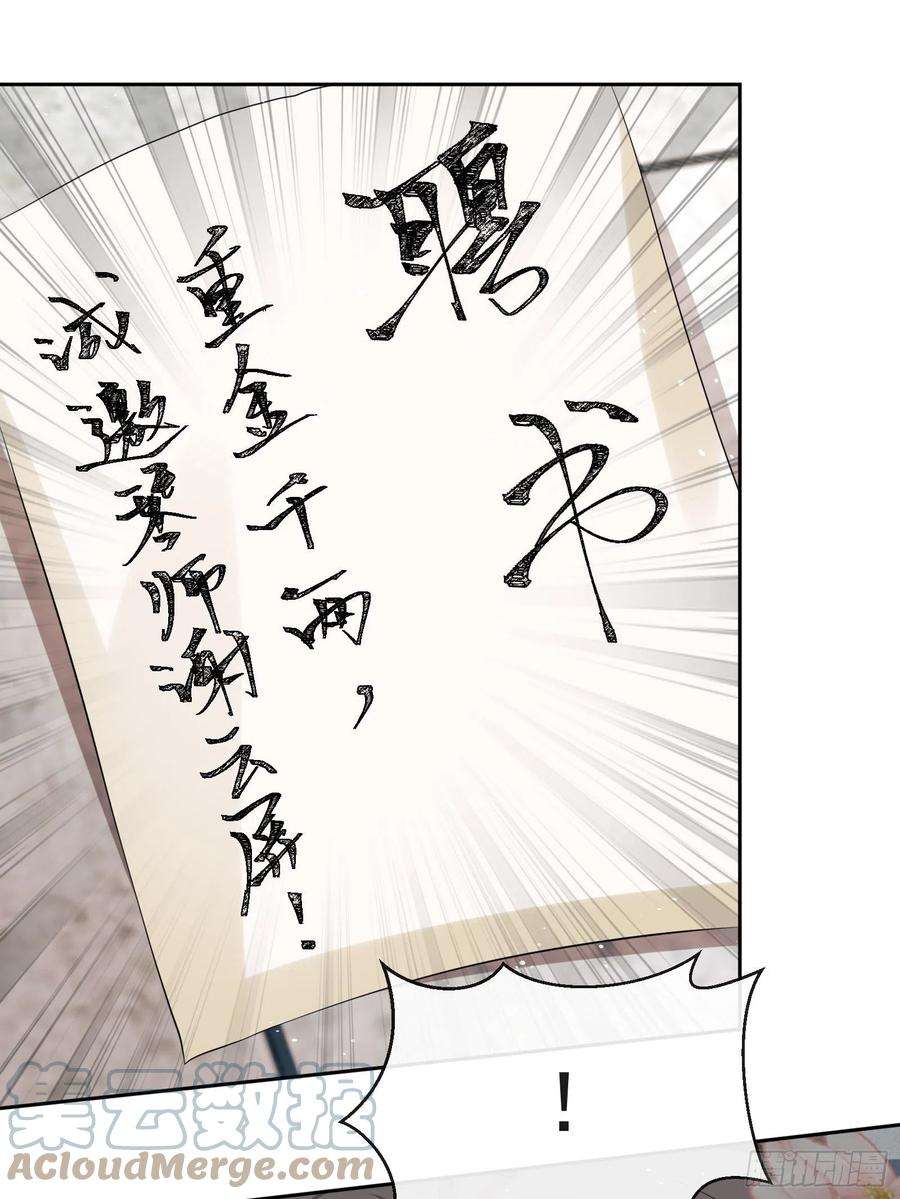 聘书
重金千两，
诚邀琴师谢云犀！
！
集云数据
ACloudMerge.com
腾讯动漫